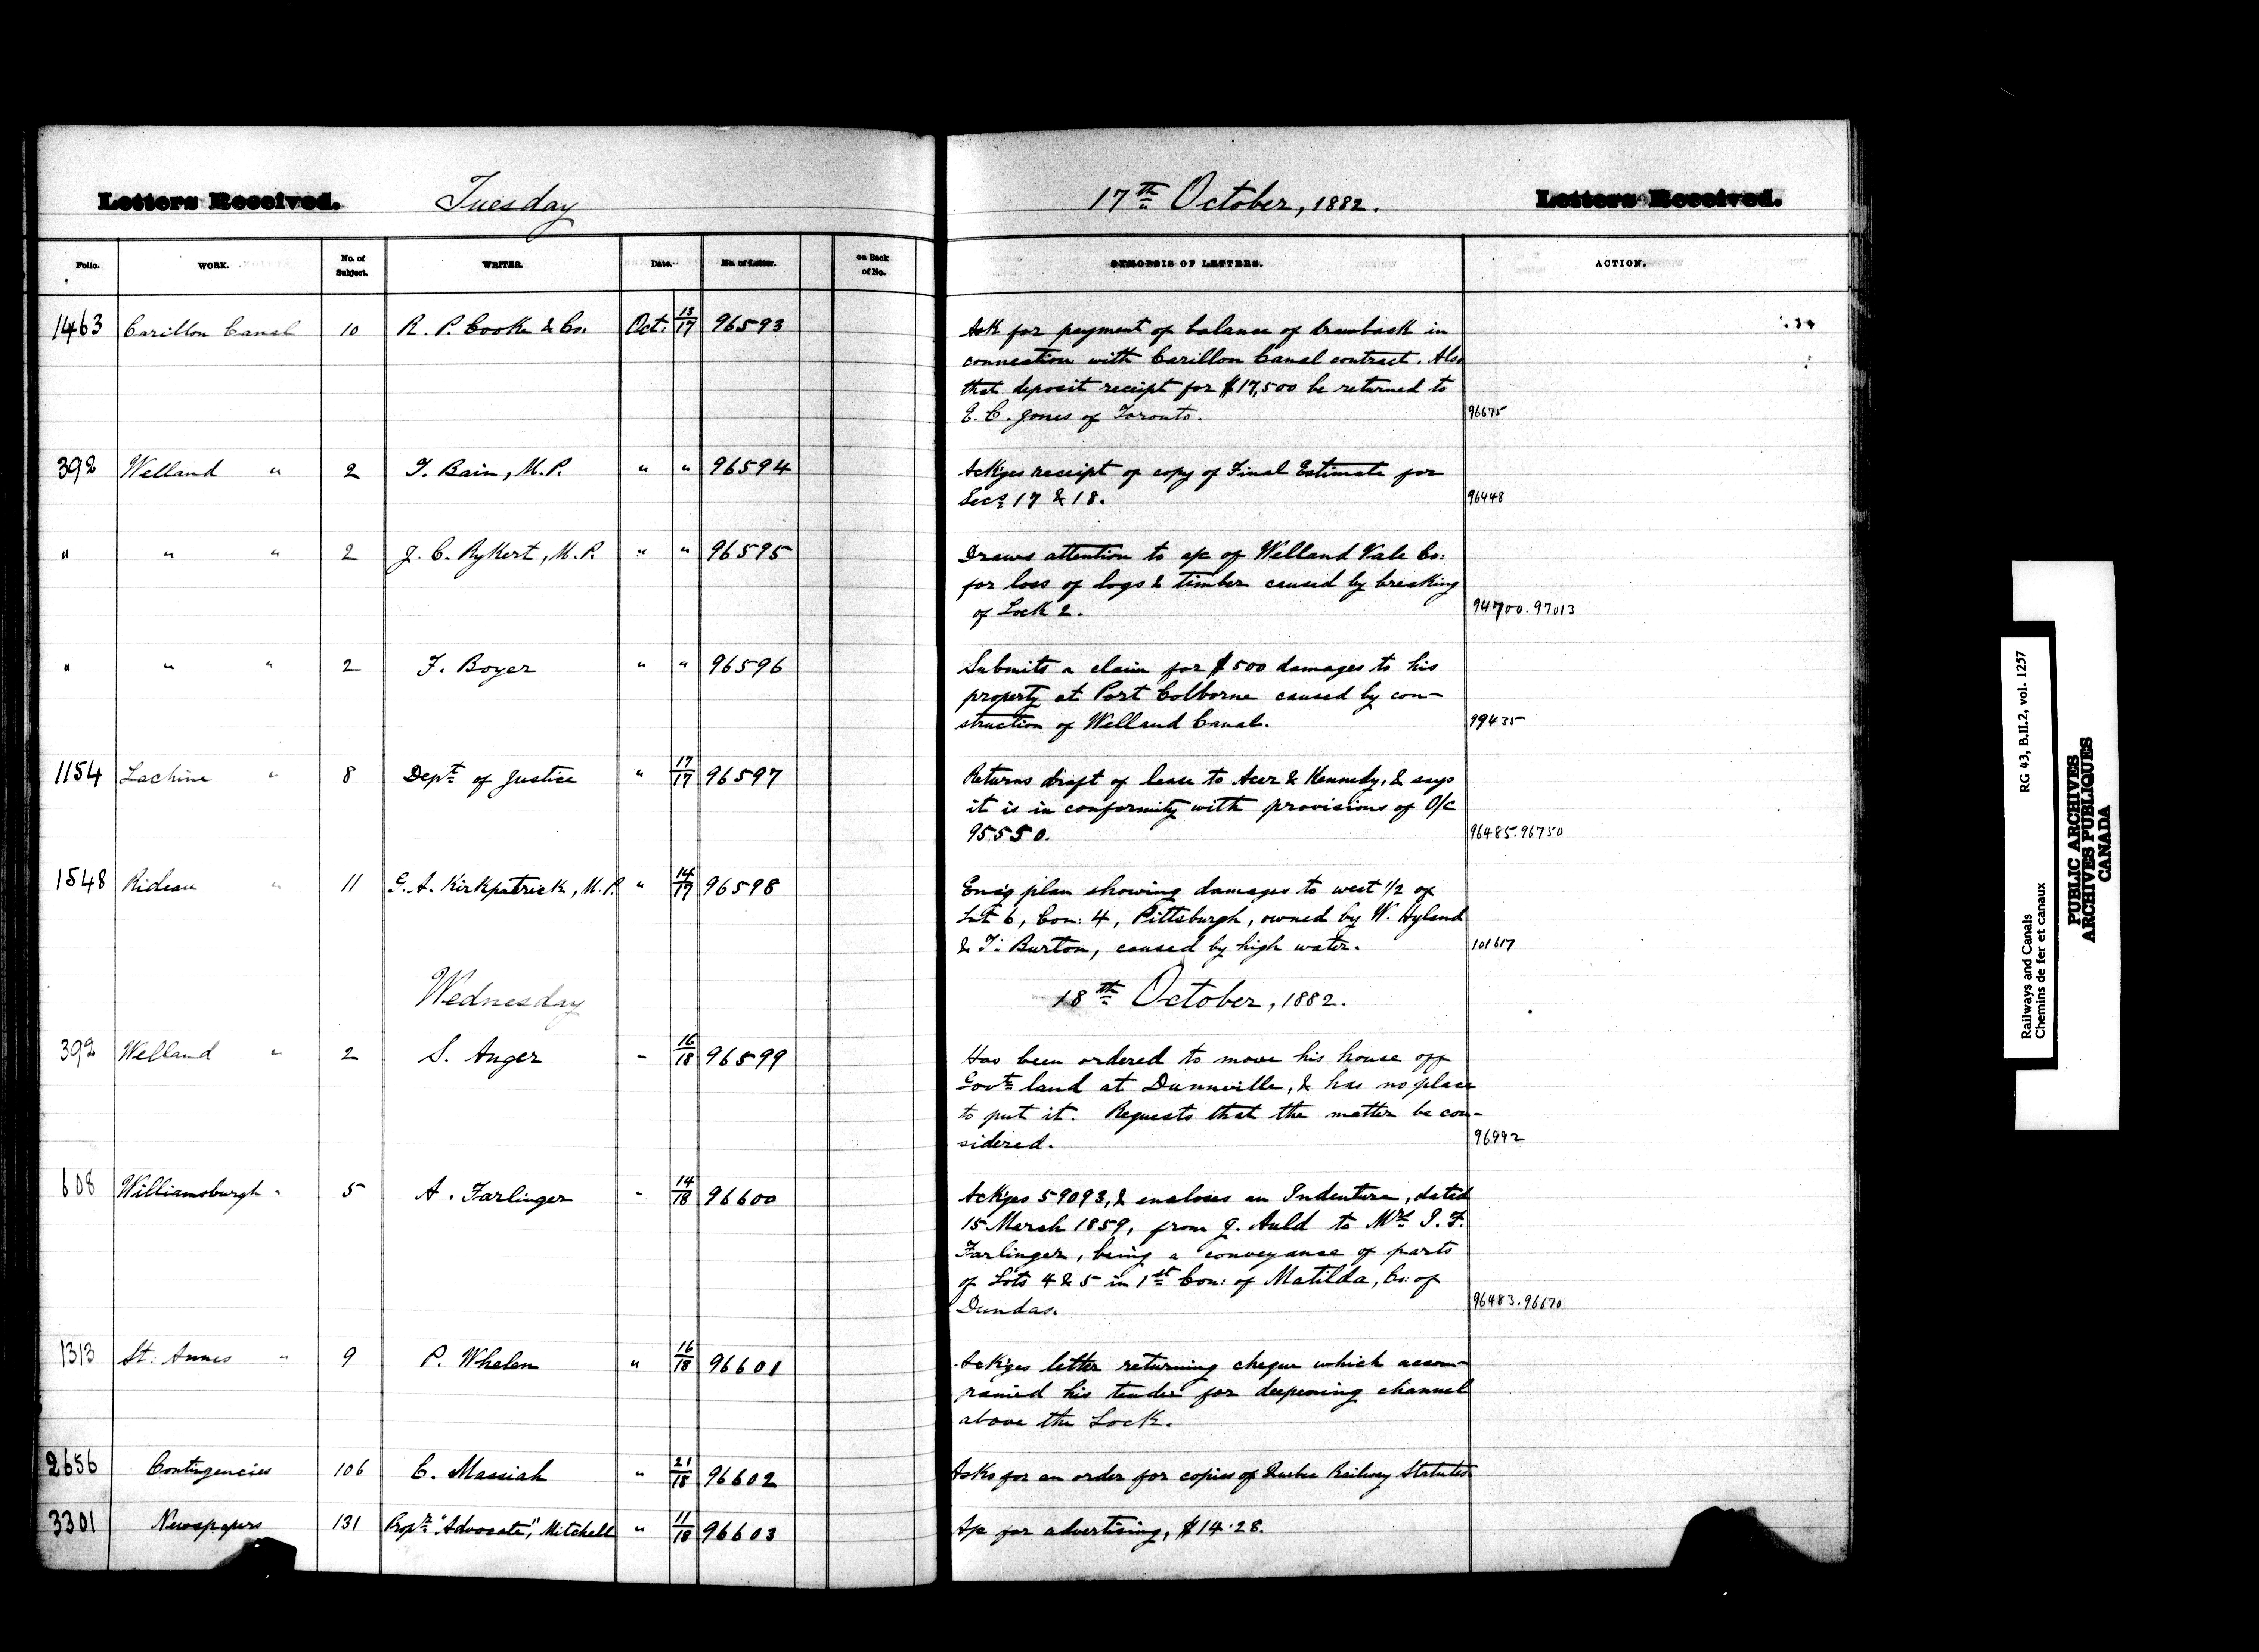 Letters Received. Tuesday 17th October, 1882. Letters Received.
Folio. WORK. No. of Subject. WRITER. Date. No. of Letter. on Back of No. SYNOPSIS OF LETTERS. ACTION.
1463 Carillon Canal 10 R. P. Cooke & Co. Oct: 13/17 96593 Ask for payment of balance of drawback in
connection with Carillon Canal contract. Also
that deposit receipt for $17,500 be returned to
E. C. Jones of Toronto. 96675
392 Welland " 2 T. Bain, M.P. " " 96594 Ackges receipt of copy of Final Estimate for
Secs 17 & 18. 96448
" " " 2 J. C. Rykert, M.P. " " 96595 Draws attention to a/c of Welland Vale Co:
for loss of logs & timber caused by breaking
of Lock 2. 94700.97013
" " " 2 F. Boyer " " 96596 Submits a claim for $500 damages to his
property at Port Colborne caused by con-
struction of Welland Canal. 99435
1154 Lachine " 8 Dept of Justice " 17/17 96597 Returns draft of lease to Acer & Kennedy, & says
it is in conformity with provisions of O/C
95550. 96485.96750
1548 Rideau " 11 G. A. Kirkpatrick, M.P. " 14/17 96598 Encg plan showing damages to west 1/2 of
Lot 6, Con: 4, Pittsburgh, owned by W. Hyland
& T. Burton, caused by high water. 101617
Wednesday 18th October, 1882.
392 Welland " 2 S. Anger " 16/18 96599 Has been ordered to move his house off
Govt land at Dunnville, & has no place
to put it. Requests that the matter be con-
sidered. 96992
608 Williamsburgh " 5 A. Farlinger " 14/18 96600 Ackges 59093, & encloses an Indenture, dated
15 March 1859, from J. Auld to Mrs I. F.
Farlinger, being a conveyance of parts
of Lots 4 & 5 in 1st Con: of Matilda, Co: of
Dundas. 96483.96670
1313 St. Annes " 9 P. Whelan " 16/18 96601 Ackges letter returning cheque which accom-
panied his tender for deepening channel
above the Lock.
2656 Contingencies 106 C. Massiah " 21/18 96602 Asks for an order for copies of Quebec Railway Statutes
3301 Newspapers 131 Propr "Advocate", Mitchell " 11/18 96603 A/c for advertising, $14.28.
Railways and Canals RG 43, B.II.2, vol. 1257
Chemins de fer et canaux
PUBLIC ARCHIVES
ARCHIVES PUBLIQUES
CANADA